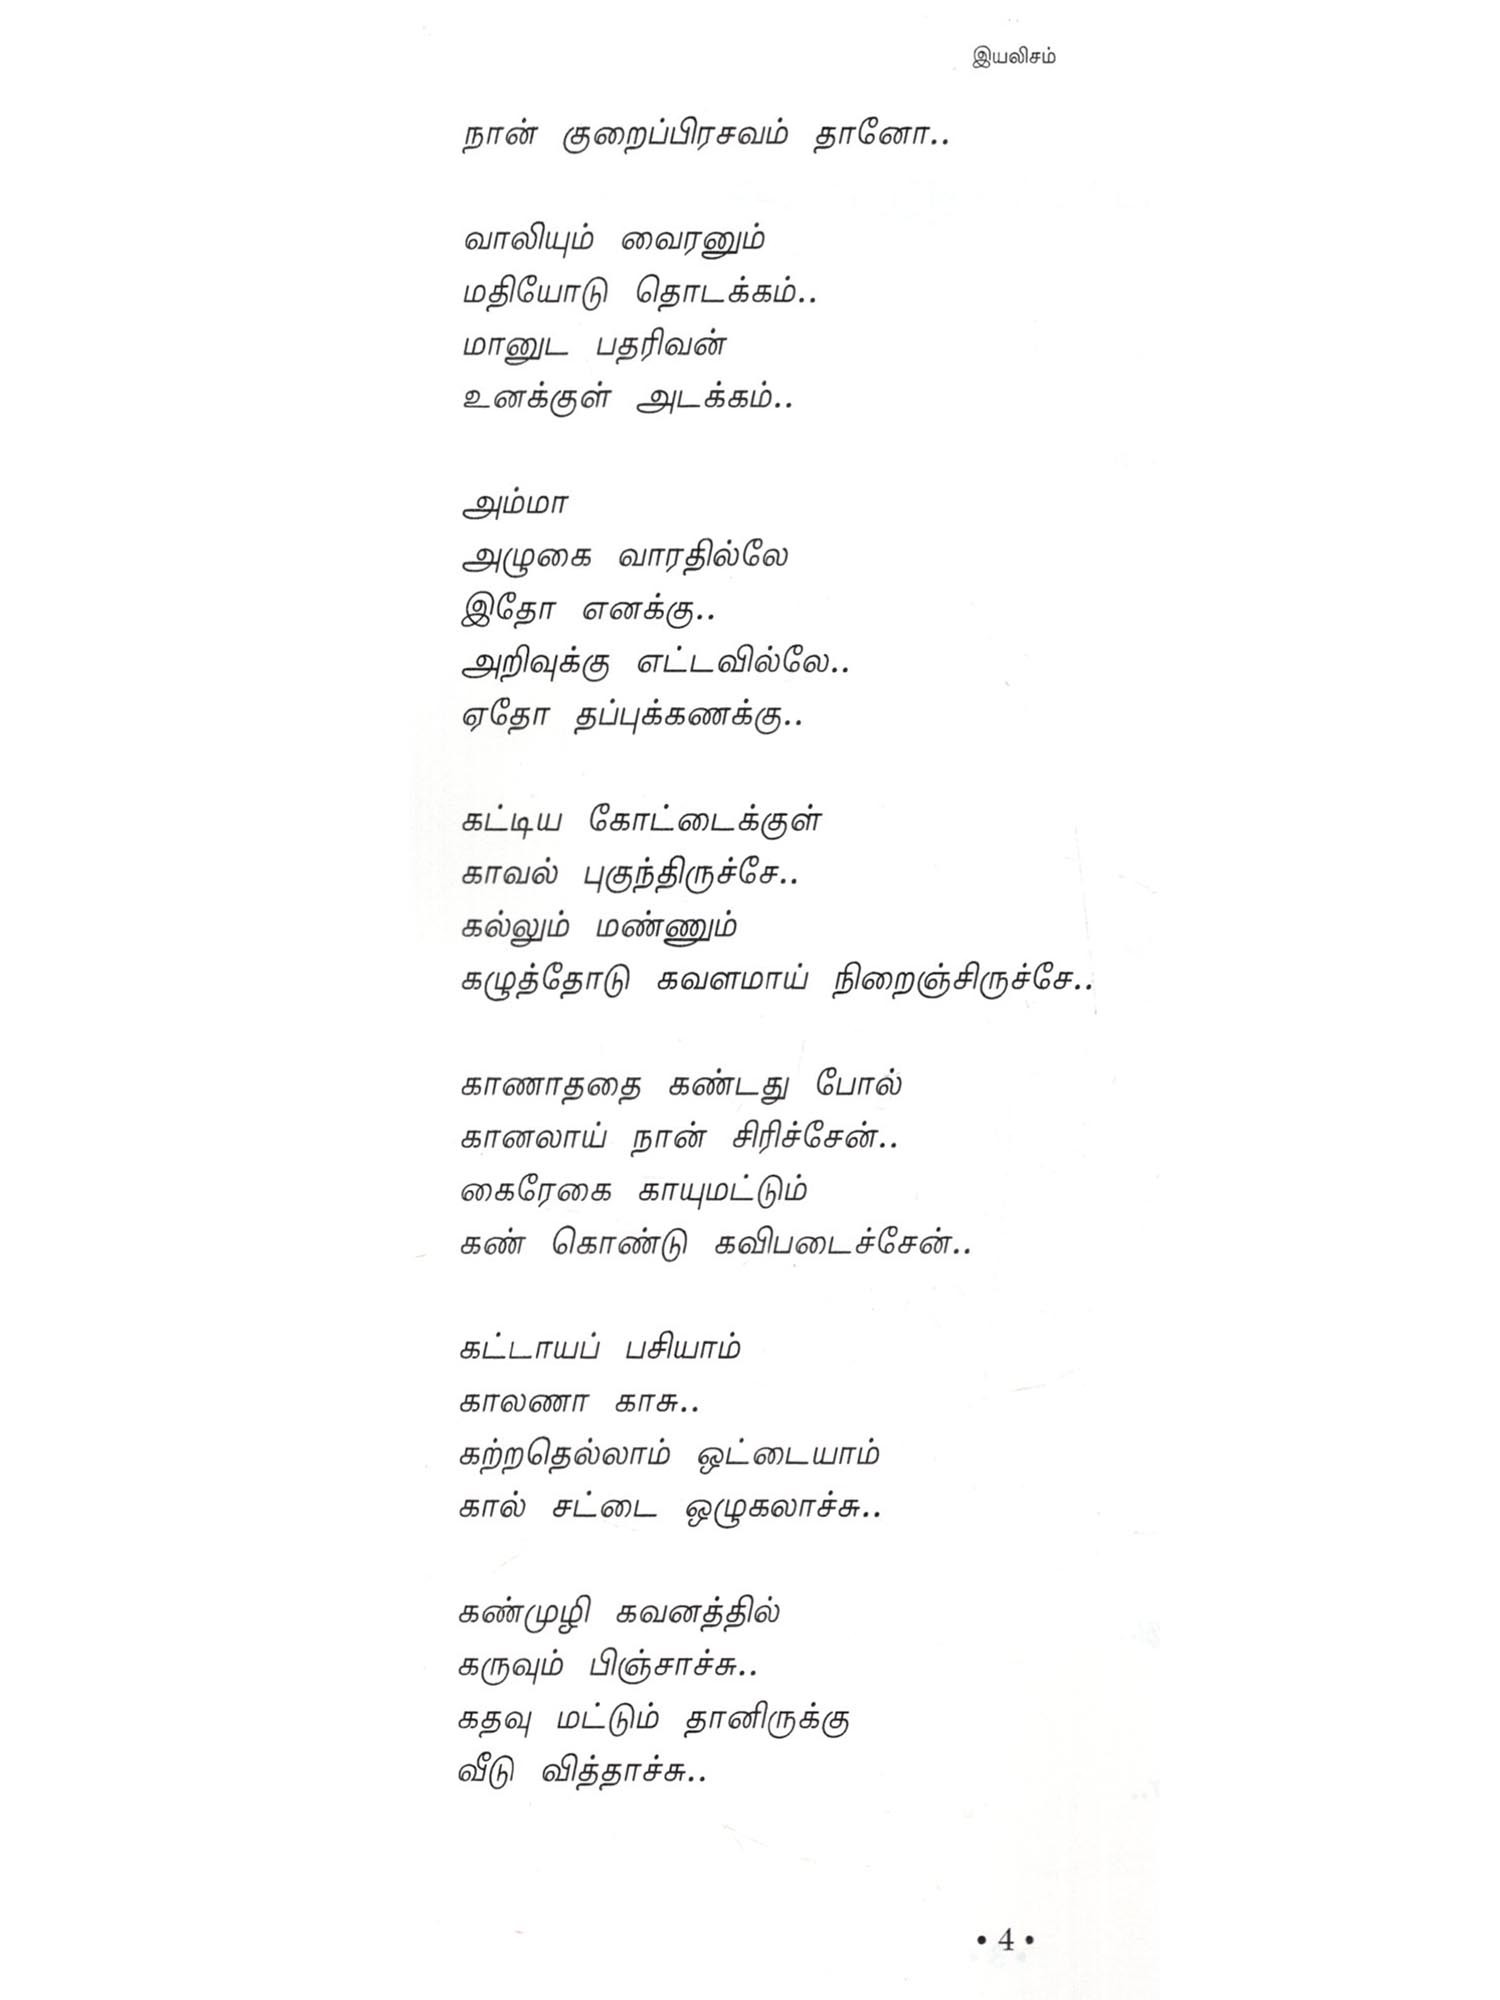 இயலிசம்
நான் குறைப்பிரசவம் தானோ..
வாலியும் வைரனும்
மதியோடு தொடக்கம்..
மானுட பதரிவன்
உனக்குள் அடக்கம்..
அம்மா
அழுகை வாரதில்லே
இதோ எனக்கு..
அறிவுக்கு எட்டவில்லே..
ஏதோ தப்புக்கணக்கு..
கட்டிய கோட்டைக்குள்
காவல் புகுந்திருச்சே..
கல்லும் மண்ணும்
கழுத்தோடு கவளமாய் நிறைஞ்சிருச்சே..
காணாததை கண்டது போல்
கானலாய் நான் சிரிச்சேன்..
கைரேகை காயுமட்டும்
கண் கொண்டு கவிபடைச்சேன்..
கட்டாயப் பசியாம்
காலணா காசு..
கற்றதெல்லாம் ஒட்டையாம்
கால் சட்டை ஒழுகலாச்சு..
கண்முழி கவனத்தில்
கருவும் பிஞ்சாச்சு..
கதவு மட்டும் தானிருக்கு
வீடு வித்தாச்சு..
• 4 •